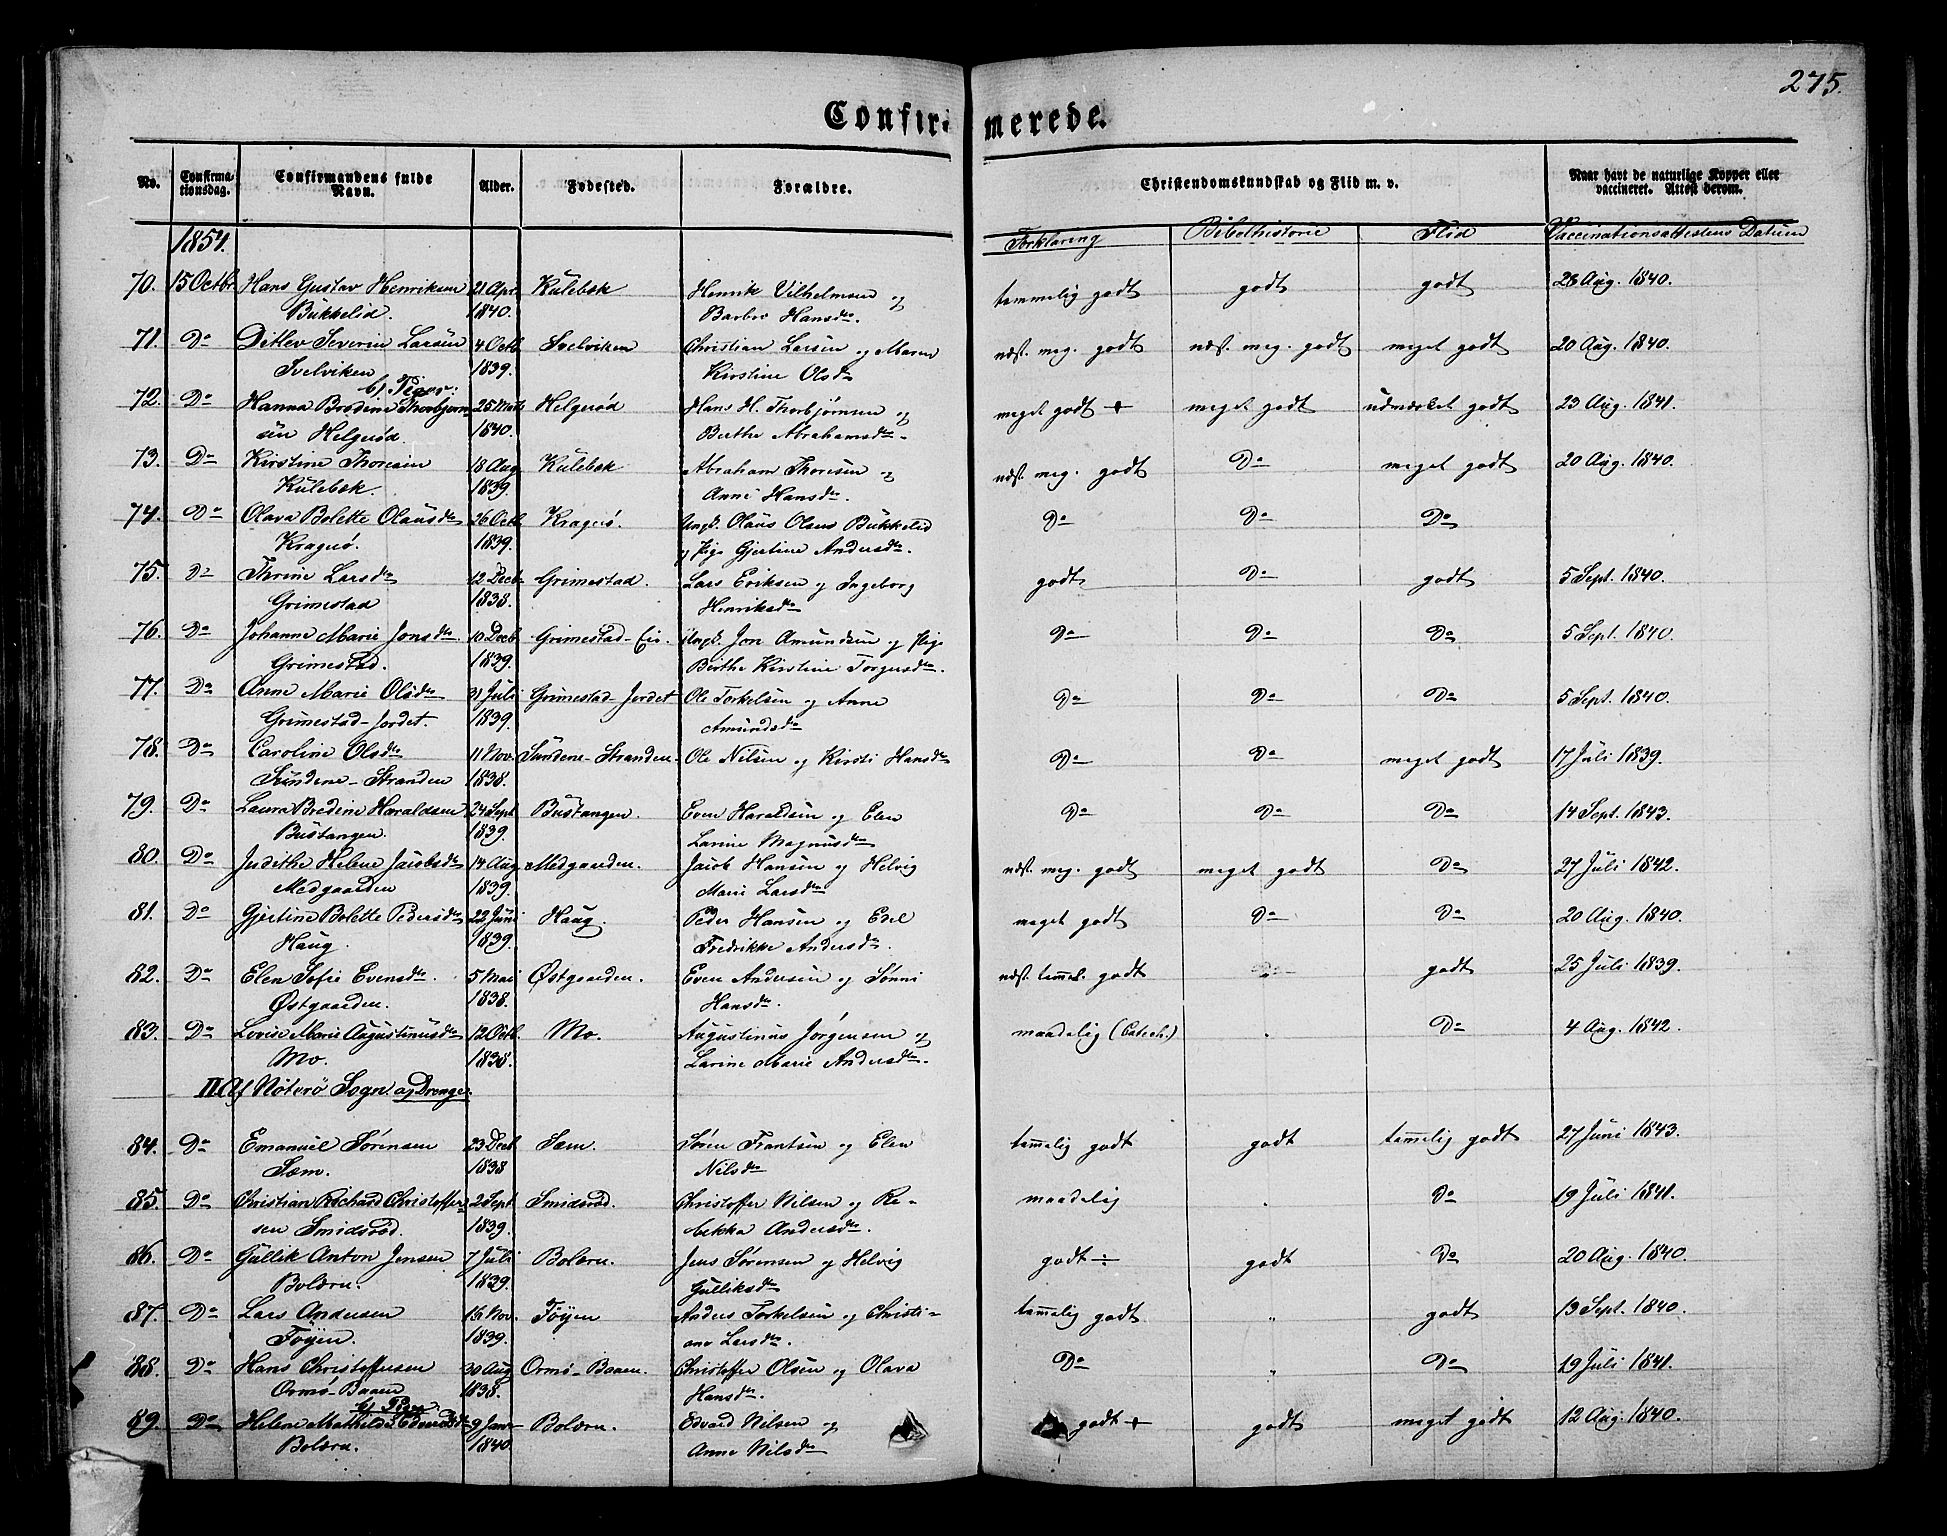 275.
Confirmerede.
No. Confirmationsdag. Confirmandens fulde Navn. Alder. Fødested. Forældre. Christendomskundskab og Flid m. v. Naar havt de naturlige Kopper eller vaccineret. Attest derom.
1854. Forklaring Bibelhistorie Flid Vaccinationsattestens Datum
70. 15 Octbr Hans Gustav Henriksen 21 Apr. Kulebek Henrik Vilhelmsen og tammelig godt godt godt 26 Aug. 1840.
Bukkelid. 1840. Barbro Hansdr.
71. Do Ditlev Severin Larsen 4 Octb. Svelviken Christian Larsen og Maren næst. meg. godt næst. meg. godt meget godt 20 Aug. 1840.
Svelviken 1839. Kirstine Olsdr
b) Piger:
72. Do Hanna Bredine Thorbjørn- 25 Marts Helgerød Hans H. Thorbjørnsen og meget godt + meget godt udmærket godt 23 Aug. 1841.
sen Helgerød. 1840. Berthe Abrahamsdr.
73. Do Kirstine Thoresen 18 Aug Kulebek Abraham Thoresen og næst. meg. godt Do meget godt 20 Aug. 1840.
Kulebek. 1839. Anne Hansdr.
74. Do Olava Bolette Olausdr 26 Octb. Kragerø. Ungk. Olaus Olaus Bukkelid Do Do Do
Kragerø. 1839. og Pige Gjertine Andersdr.
75. Do Thrine Larsdr 12 Decb. Grimestad. Lars Eriksen og Ingeborg godt Do godt 5 Sept. 1840.
Grimestad 1838. Henriksdr
76. Do Johanne Marie Jonsdr. 10 Decb. Grimestad-Eie. Ungk. Jon Amundsen og Pige Do Do Do 5 Sept. 1840.
Grimestad. 1839. Berthe Kirstine Torgersdr.
77. Do Anne Marie Olsdr 31 Juli Grimestad-Jordet Ole Torkelsen og Anne Do Do Do 5 Sept. 1840.
Grimestad-Jordet. 1839. Amundsdr
78. Do Caroline Olsdr 11 Nov. Sundene-Stranden. Ole Nilsen og Kirsti Hansdr Do Do meget godt 17 Juli 1839.
Sundene-Stranden 1838.
79. Do Laura Bredine Haraldsen 24 Sept Bustangen. Even Haraldsen og Elen Do Do Do 14 Sept. 1843.
Bustangen. 1839. Larine Magnusdr
80. Do Judithe Helene Jacobsdr 14 Aug Medgaarden. Jacob Hansen og Helvig næst. meg. godt meget godt Do 27 Juli 1842.
Medgaarden 1839. Marie Larsdr
81. Do Gjertine Bolette Pedersdr 22 Juni Haug. Peder Hansen og Edel meget godt Do Do 20 Aug. 1840.
Haug. 1839. Fredrikke Andersdr.
82. Do Elen Sofie Evensdr. 5 Mai Østgaarden. Even Andersen og Sønni næst. tamel. godt godt 25 Juli 1839.
Østgaarden. 1838. Hansdr.
83. Do Lovise Marie Augustinusdr 12 Octb. Mo. Augustinus Jørgensen og maadelig (Catech.) Do 4 Aug. 1842.
Mo. 1838. Larine Marie Andersdr.
II Af Nøterø Sogn. a) Drenge.
84. Do Emanuel Sørensen 23 Decb. Sæm. Søren Frantsen og Elen tamelig godt godt tamelig godt 27 Juni 1843.
Sæm. 1838 Nilsdr
85. Do Christian Richard Christoffer- 2 Sept Smidsrød. Christoffer Nilsen og Re- maadelig Do 19 Juli 1841.
sen Smidsrød. 1839. bekka Andersdr.
86. Do Gullik Anton Jensen 7 Juli Bolæren. Jens Sørensen og Helvig godt ÷ godt Do 20 Aug. 1840.
Bolæren. 1839. Gulliksdr
87. Do Lars Andersen 16 Nov. Føyen Anders Torkelsen og Christi- tamelig godt. " godt 13 Sept. 1840.
Føyen. 1839. ane Larsdr.
88. Do Hans Christoffersen 30 Aug Ormø-Baaen. Christoffer Olsen og Olava Do " Do 19 Juli 1841.
Ormø-Baaen 1838. Hansdr.
b) Piger.
89. Do Helene Mathilde Edvardsdr 9 Janr Bolæren. Edvard Nilsen og godt + godt meget godt 12 Aug. 1840.
Bolæren. 1840. Anne Nilsdr